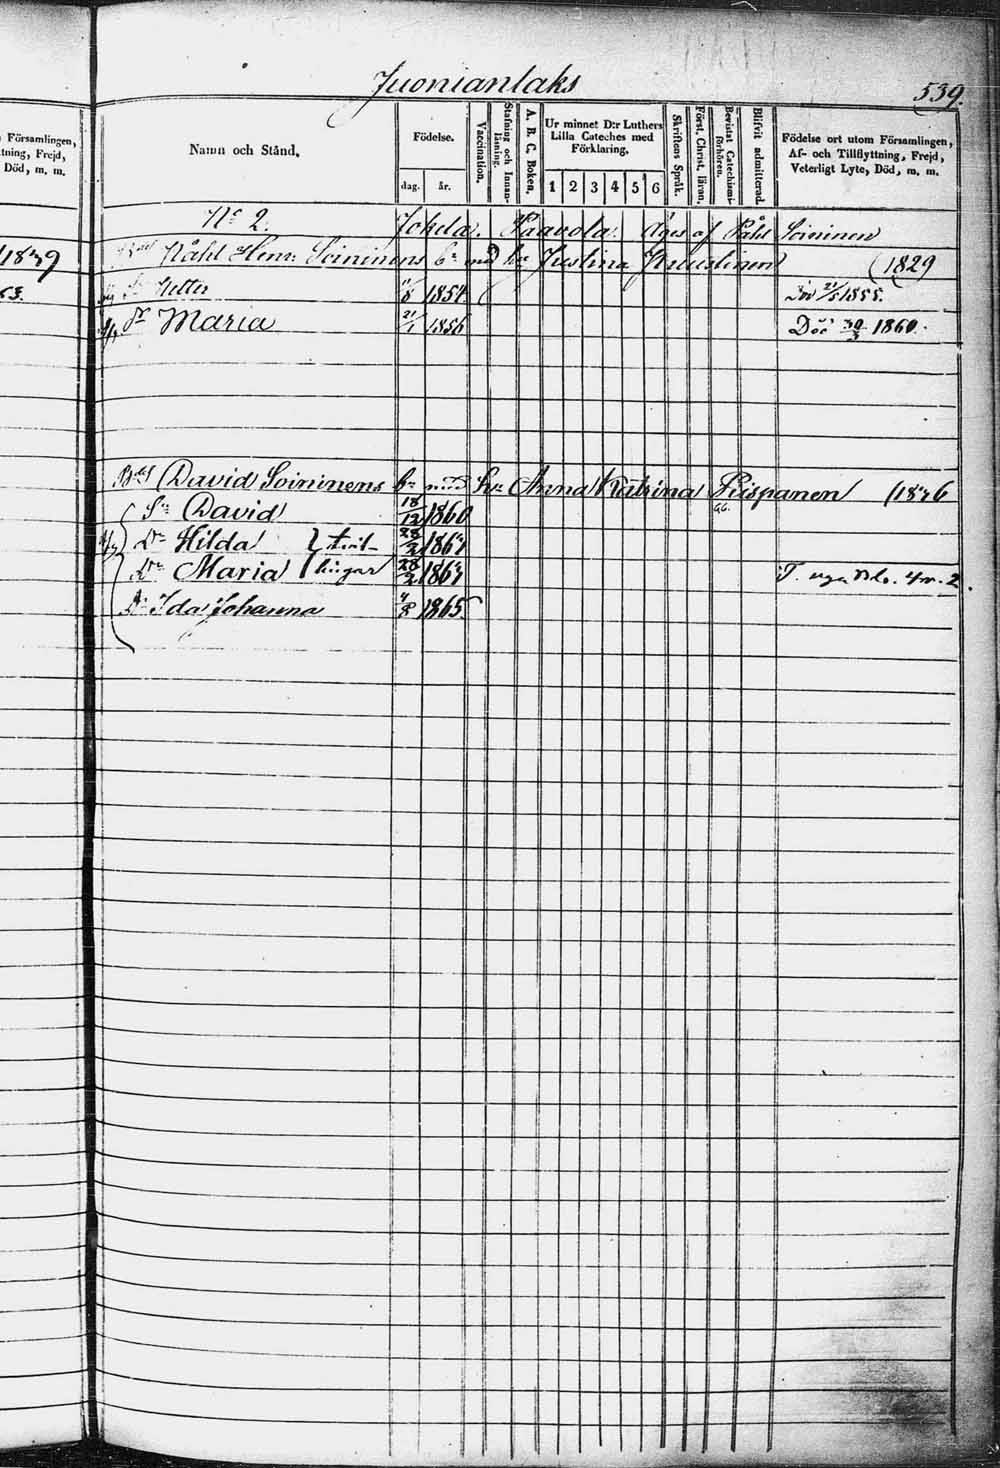 Juonianlaks
539.
Församlingen,
tning, Frejd,
Död, m. m.
Namn och Stånd.
Födelse.
dag. år.
Vaccination.
Stafning och Innanläsning.
A. B. C. Boken.
Ur minnet D:r Luthers Lilla Cateches med Förklaring.
1 2 3 4 5 6
Skriftens Språk.
Först. Christ. läran.
Bevistat Catechismiförhören.
Blifvit admitterad.
Födelse ort utom Församlingen,
Af- och Tillflyttning, Frejd,
Veterligt Lyte, Död, m. m.
No 2. Jokela. Paavola. Äges af Påhl Soininen
Påhl Henr: Soininens bn med hu Justina (1829
1854. Död 21/5 1855.
Dr Maria 21/1 1856 Död 30/3 1860.
David Soininens bn med hu Anna Katrina Piispanen (1826
Sn David 18/12 1860
Dr Hilda } tvil- 28/2 1864
Dr Maria } lingar 28/2 1864
Dr Ida Johanna 4/8 1865.